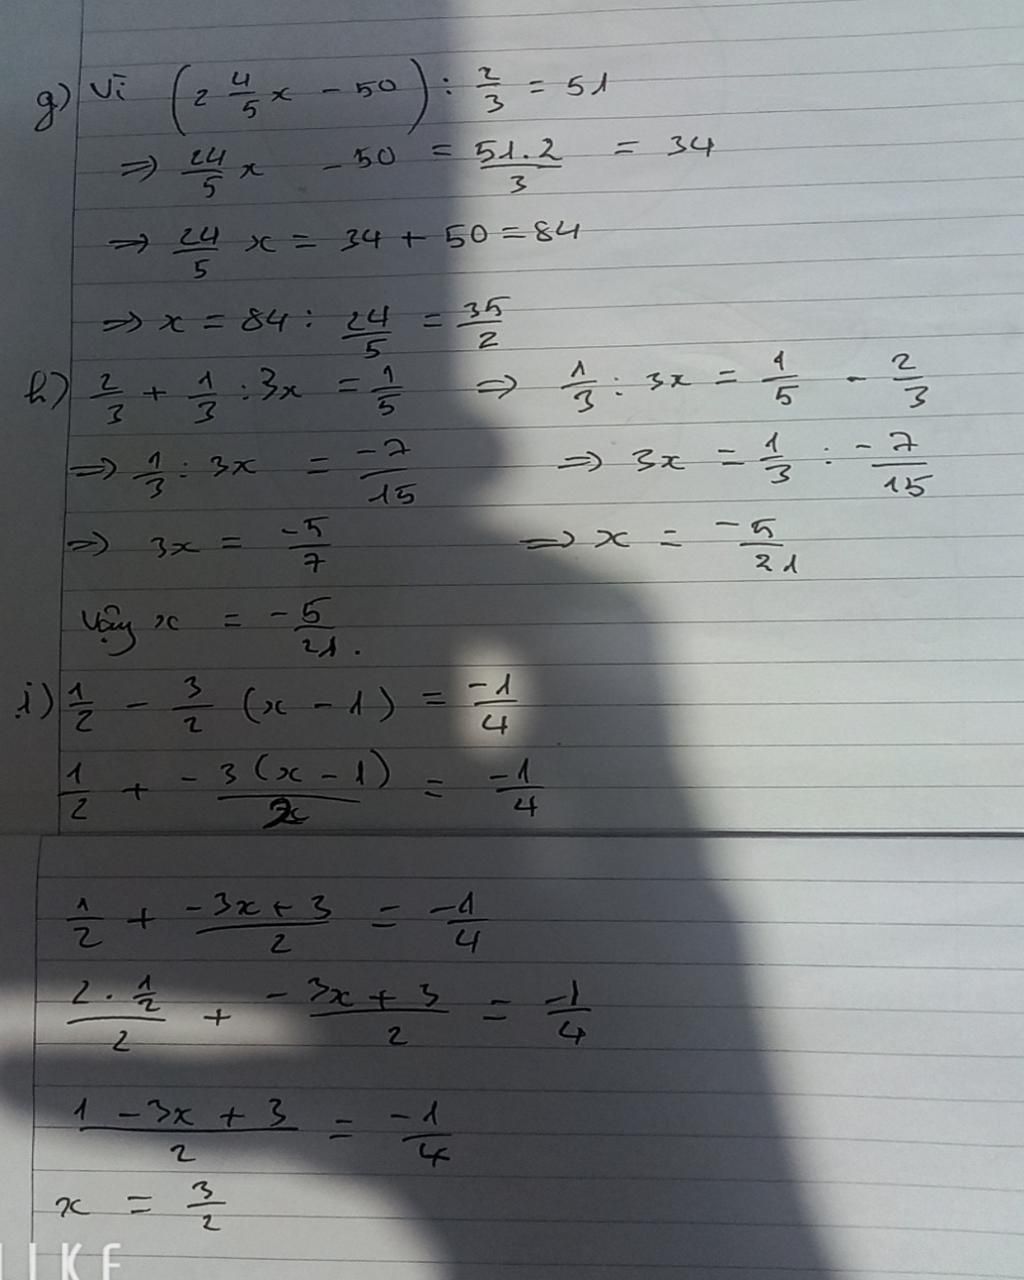 g) Vì (2 4/5 x - 50) : 2/3 = 51
=> 24/5 x - 50 = 51.2/3 = 34
=> 24/5 x = 34 + 50 = 84
=> x = 84 : 24/5 = 35/2
h) 2/3 + 1/3 : 3x = 1/5 => 1/3 : 3x = 1/5 - 2/3
=> 1/3 : 3x = -7/15 => 3x = 1/3 : -7/15
=> 3x = -5/7 => x = -5/21
Vậy x = -5/21.
i) 1/2 - 3/2 (x - 1) = -1/4
1/2 + -3(x - 1)/2 = -1/4
1/2 + -3x + 3/2 = -1/4
2 . 1/2/2 + -3x + 3/2 = -1/4
1 - 3x + 3/2 = -1/4
x = 3/2